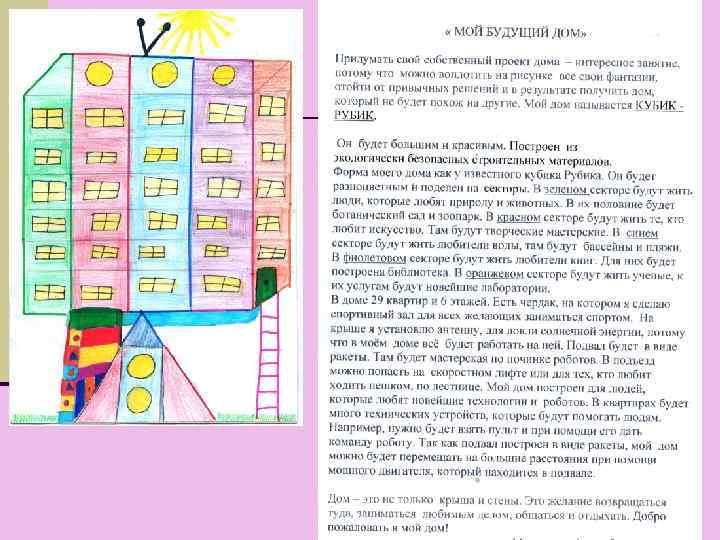 « МОЙ БУДУЩИЙ ДОМ»
Придумать свой собственный проект дома – интересное занятие,
потому что можно воплотить на рисунке все свои фантазии,
отойти от привычных решений и в результате получить дом,
который не будет похож на другие. Мой дом называется КУБИК -
РУБИК.
Он будет большим и красивым. Построен из
экологически безопасных строительных материалов.
Форма моего дома как у известного кубика Рубика. Он будет
разноцветным и поделен на секторы. В зеленом секторе будут жить
люди, которые любят природу и животных. В их половине будет
ботанический сад и зоопарк. В красном секторе будут жить те, кто
любит искусство. Там будут творческие мастерские. В синем
секторе будут жить любители воды, там будут бассейны и пляжи.
В фиолетовом секторе будут жить любители книг. Для них будет
построена библиотека. В оранжевом секторе будут жить ученые, к
их услугам будут новейшие лаборатории.
В доме 29 квартир и 6 этажей. Есть чердак, на котором я сделаю
спортивный зал для всех желающих заниматься спортом. На
крыше я установлю антенну, для ловли солнечной энергии, потому
что в моём доме всё будет работать на ней. Подвал будет в виде
ракеты. Там будет мастерская по починке роботов. В подъезд
можно попасть на скоростном лифте или для тех, кто любит
ходить пешком, по лестнице. Мой дом построен для людей,
которые любят новейшие технологии и роботов. В квартирах будет
много технических устройств, которые будут помогать людям.
Например, нужно будет взять пульт и при помощи его дать
команду роботу. Так как подвал построен в виде ракеты, мой дом
можно будет перемещать на большие расстояния при помощи
мощного двигателя, который находится в подвале.
Дом – это не только крыша и стены. Это желание возвращаться
туда, заниматься любимым делом, общаться и отдыхать. Добро
пожаловать в мой дом!